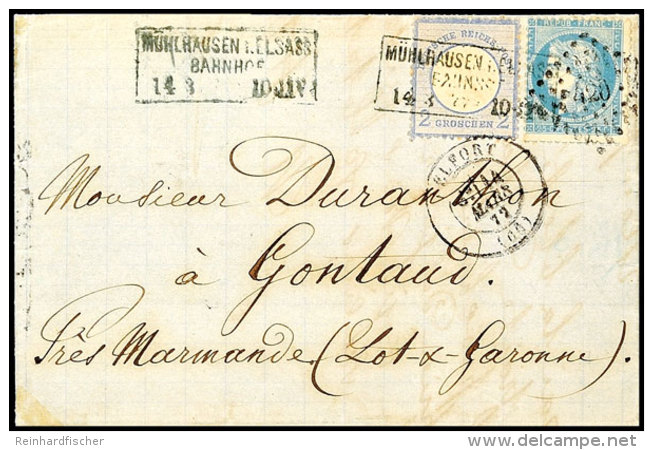 MÜHLHAUSEN I. ELSASS
BAHNHOF
14 3
MÜHLHAUSEN I.
14 3 72
2 GROSCHEN 2
REPUB · FRANC
420
BELFORT
14
MARS
72
(66)
Monsieur Duranthon
à Gontaud.
Près Marmande (Lot-&-Garonne).
Reinhardfischer
delcampe.net